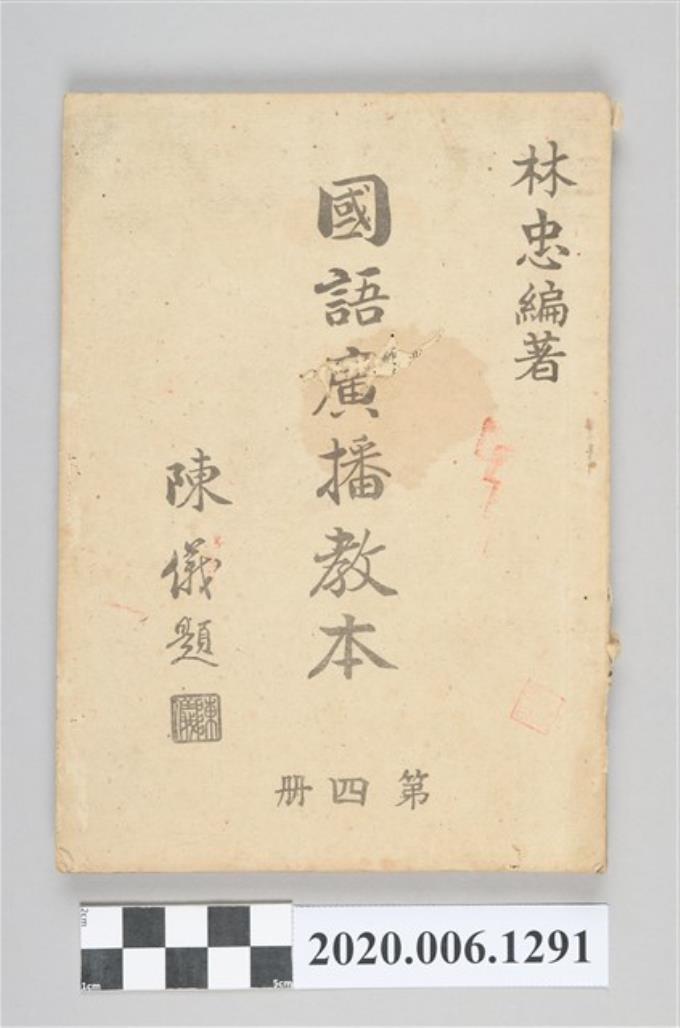 林忠編著
國語廣播教本
陳儀題
第四册
2020.006.1291
2cm
1cm
5cm